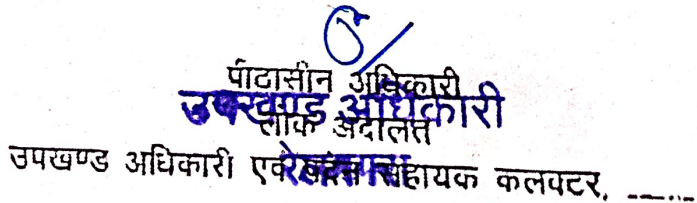 पीठासीन अधिकारी
उपखण्ड अधिकारी
लोक अदालत
उपखण्ड अधिकारी एवं सहायक कलक्टर, .....